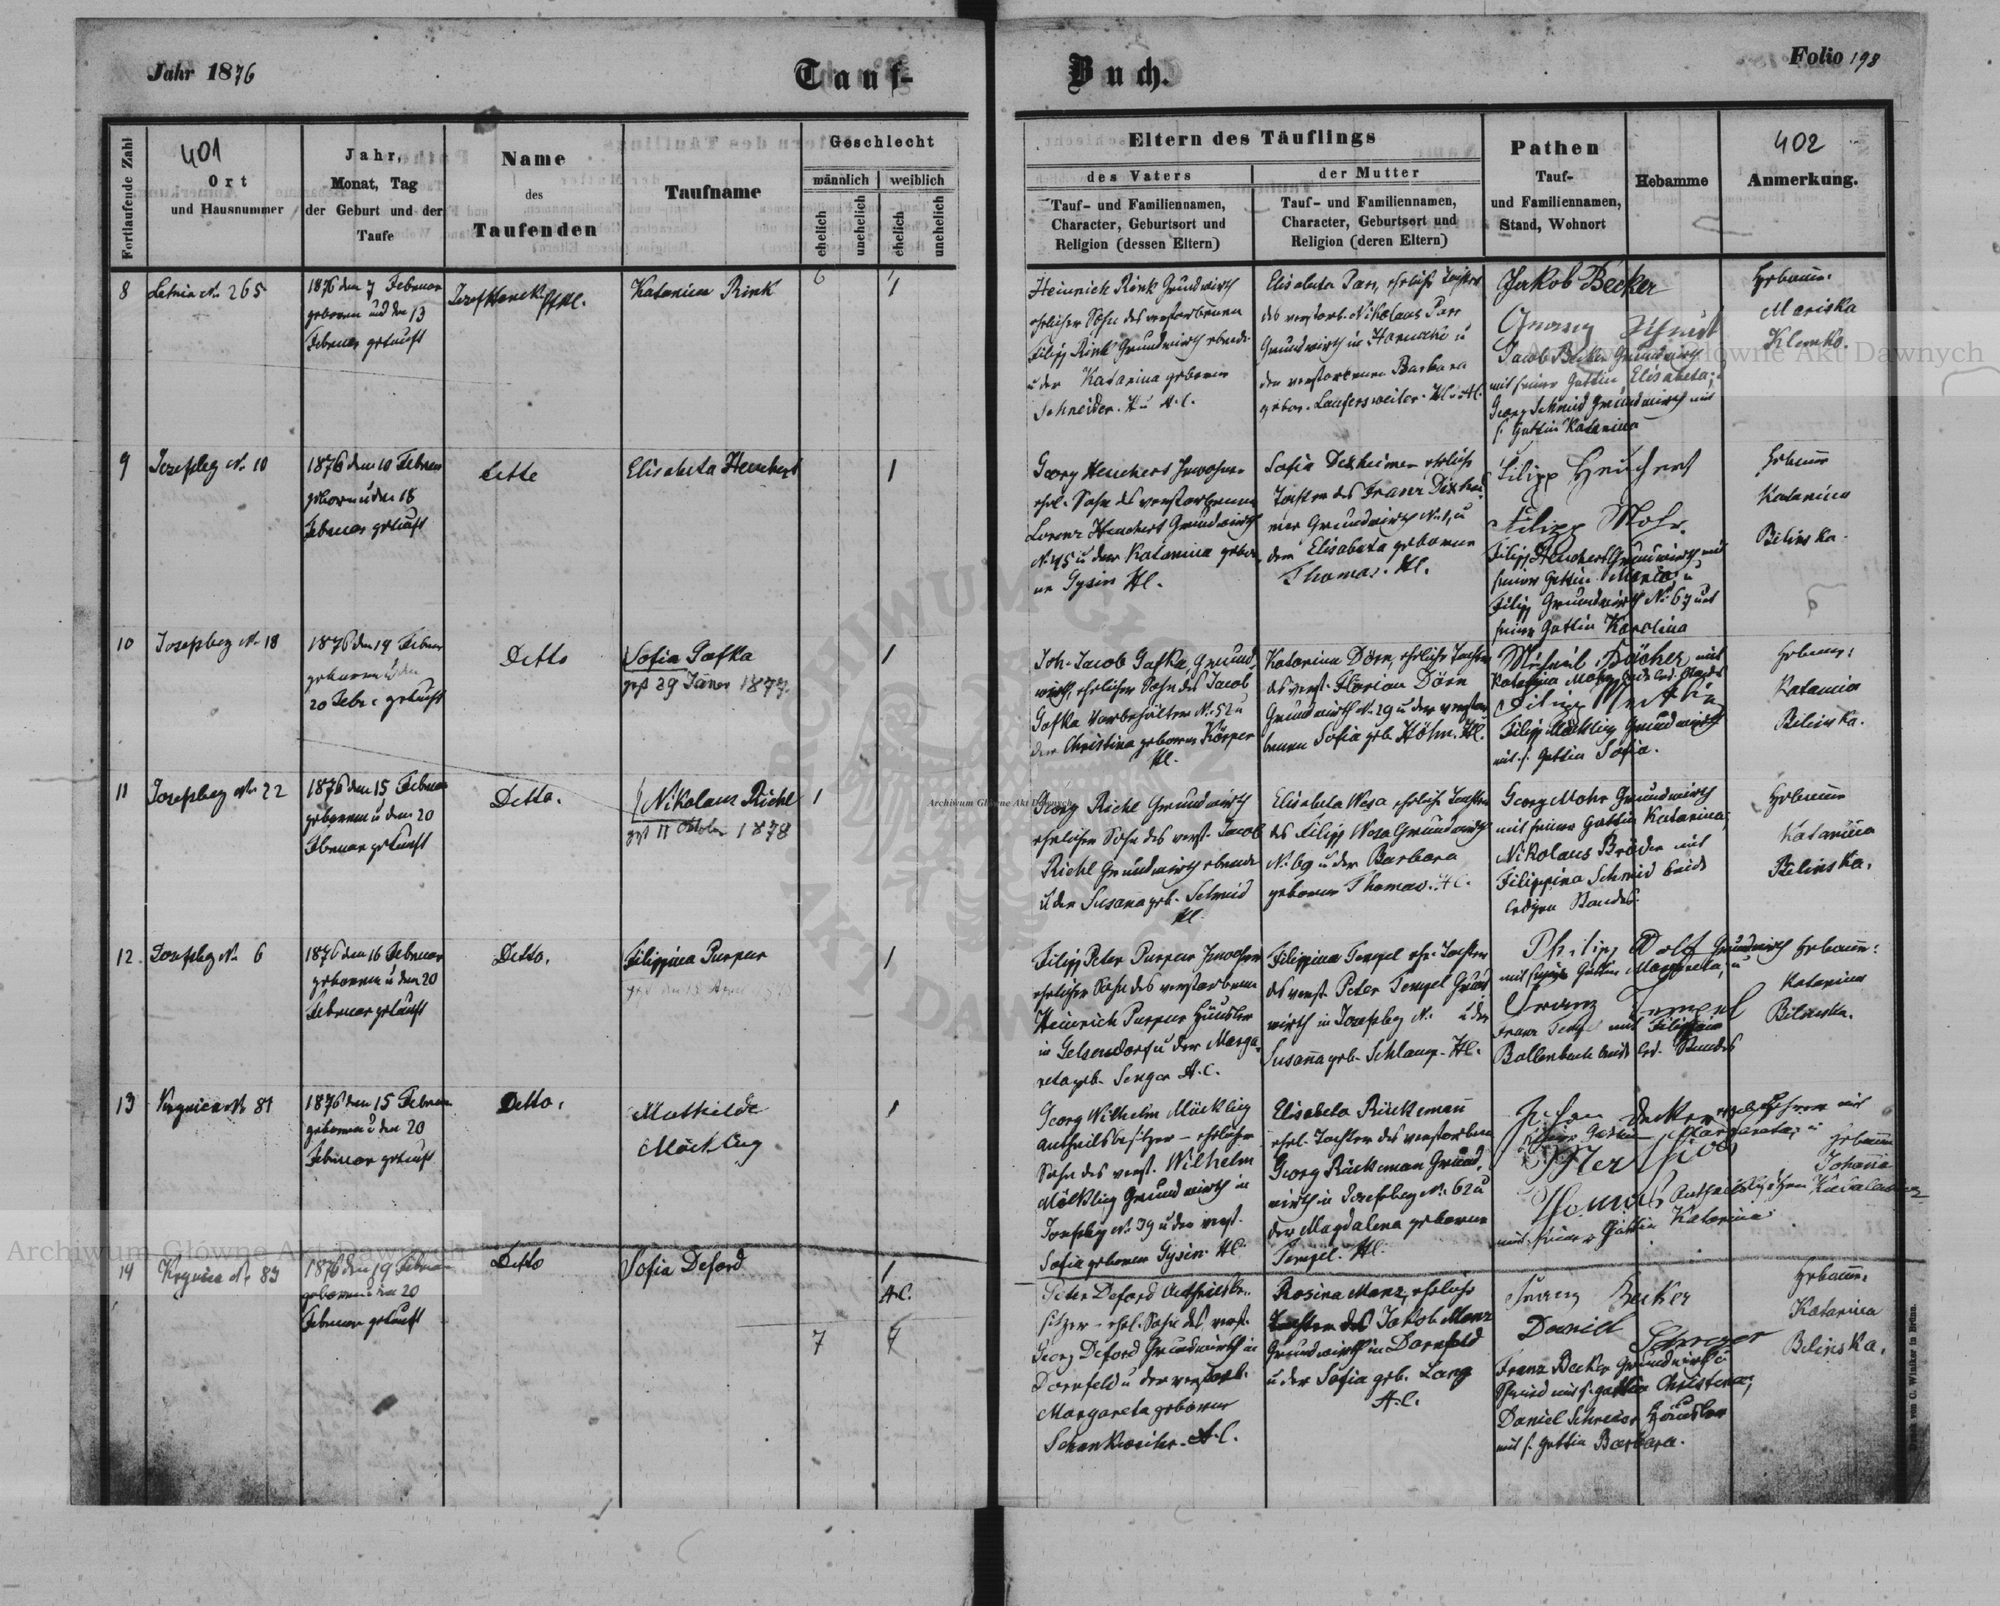 Jahr 1876
Tauf-
Buch.
Folio 198
Fortlaufende Zahl
401
Ort
und Hausnummer
Jahr,
Monat, Tag
der Geburt und der
Taufe
Name
des
Taufenden
Taufname
Geschlecht
männlich
weiblich
ehelich
unehelich
ehelich
unehelich
Eltern des Täuflings
des Vaters
der Mutter
Tauf- und Familiennamen,
Character, Geburtsort und
Religion (dessen Eltern)
Tauf- und Familiennamen,
Character, Geburtsort und
Religion (deren Eltern)
Pathen
Tauf-
und Familiennamen,
Stand, Wohnort
Hebamme
402
Anmerkung.
8
Letnia N. 265
1876 den 7 Februar
geboren und den 13
Februar getauft
Katarina Rink
6
1
Heinrich Rink Grundwirth
ehelicher Sohn des verstorbenen
Filipp Rink Grundwirth
u der Katarina geborene
Schneider. A. C.
Elisabeta Parr, eheliche Tochter
des verstorb. Nikolaus Parr
Grundwirth in u
der verstorbenen Barbara
gebor. Laufersweiler.
Jakob Becker
Georg Schmid
Jacob Becker Grundwirth
mit seiner Gattin Elisabeta;
Georg Schmid Grundwirth mit
s. Gattin Katarina
Hebamme
Mariska
Klemko.
9
Josefsberg N. 10
1876 den 10 Februar
geboren u den 18
Februar getauft
Detto
Elisabeta Heuchert
1
Georg Heuchert
ehel. Sohn des verstorbenen
Lorenz Heuchert Grundwirth
N. 45 u der Katarina gebor
ne Gysin Hl.
Sofia Dexheimer eheliche
Tochter des Franz Dexhei
mer Grundwirth N. 1, u
der Elisabeta geborene
Thomas. Hl.
Filipp Heuchert
Filipp Mohr.
Filipp Heuchert Grundwirth mit
seiner Gattin Maria, u
Filipp Grundwirth N. 67 mit
seiner Gattin Karolina
Hebamme
Katarina
Bilinska.
10
Josefsberg N. 18
1876 den 19 Februar
geboren u den
20 Febr. getauft
Detto
Sofia Gafka
gest 29 Jäner 1877.
1
Joh. Jacob Gafka Grund
wirth, ehelicher Sohn des Jacob
Gafka N. 52 u
der Christina geborene Körper
Hl.
Katarina Dörn, eheliche Tochter
des verst. Florian Dörn
Grundwirth N. 29 u der verstor
benen Sofia geb. Höhn. Hl.
Filipp Möcklig Grundwirth
mit s. Gattin Sofia.
Hebamme
Katarina
Bilinska.
11
Josefsberg N. 22
1876 den 15 Februar
geboren u den 20
Februar getauft
Detto.
Nikolaus Richl
gest 11 October 1878
1
Georg Richl Grundwirth
ehelicher Sohn des verst. Jacob
Richl Grundwirth
u der Susana geb. Schmid
Hl.
Elisabeta Wesa eheliche Tochter
des Filipp Wesa Grundwirth
N. 69 u der Barbara
geborene Thomas. H.C.
Georg Mohr Grundwirth
mit seiner Gattin Katarina;
Nikolaus Bröder mit
Filippina Schmid beide
ledigen Standes.
Hebamme
Katarina
Bilinska.
12
Josefsberg N. 6
1876 den 16 Februar
geboren u den 20
Februar getauft
Detto.
Filippina Purpur
1
Filipp Peter Purpur
ehelicher Sohn des verstorbenen
Heinrich Purpur Häusler
in Gelsendorf u der Marga
reta geb. Senger A.C.
Filippina Tempel ehe. Tochter
des verst. Peter Tempel Grund
wirth in Josefsberg N. u der
Susanna geb. Schlamp. Hl.
Philipp Wolf Grundwirth
mit seiner Gattin Margareta, u
Franz Tempel
Franz Tempel mit Filippina
Bollenbach beide led. Standes
Hebamme
Katarina
Bilinska.
13
Krynica N. 81
1876 den 15 Februar
geboren u den 20
Februar getauft
Detto.
Mathilde
Möcklig
1
Georg Wilhelm Möcklig
Antheilsbesitzer - ehelicher
Sohn des verst. Wilhelm
Möcklig Grundwirth in
Josefsbg N. 39 u der verst.
Sofia geborene Gysin. Hl.
Elisabeta Rückemann
ehel. Tochter des verstorbenen
Georg Rückeman Grund
wirth in Josefsberg N. 62 u
der Magdalena geborene
Tempel. Hl.
seiner Gattin Margareta; u
Antheilsbesitzer
mit seiner Gattin Katarina
Hebamme
Johanna
14
Krynica N. 83
1876 den 19 Februar
geboren u den 20
Februar getauft
Detto
Sofia Deford
1
A.C.
7
Peter Deford Antheilsbe
sitzer - ehel. Sohn des verst.
Georg Deford Grundwirth in
Dornfeld u der verstorb.
Margareta geborene
Schankweiler. A.C.
Rosina Manz, eheliche
Tochter des Jakob Manz
Grundwirth in Dornfeld
u der Sofia geb. Lang
A.C.
Franz Becker
Daniel Schreyer
Franz Becker Grundwirth
mit s. Gattin Christina;
Daniel Schreier Häusler
mit s. Gattin Barbara.
Hebamme
Katarina
Bilinska.
Archiwum Główne Akt Dawnych
Archiwum Główne Akt Dawnych
Archiwum Główne Akt Dawnych
ARCHIWUM GŁÓWNE AKT DAWNYCH
von C. Winiker in Brünn.